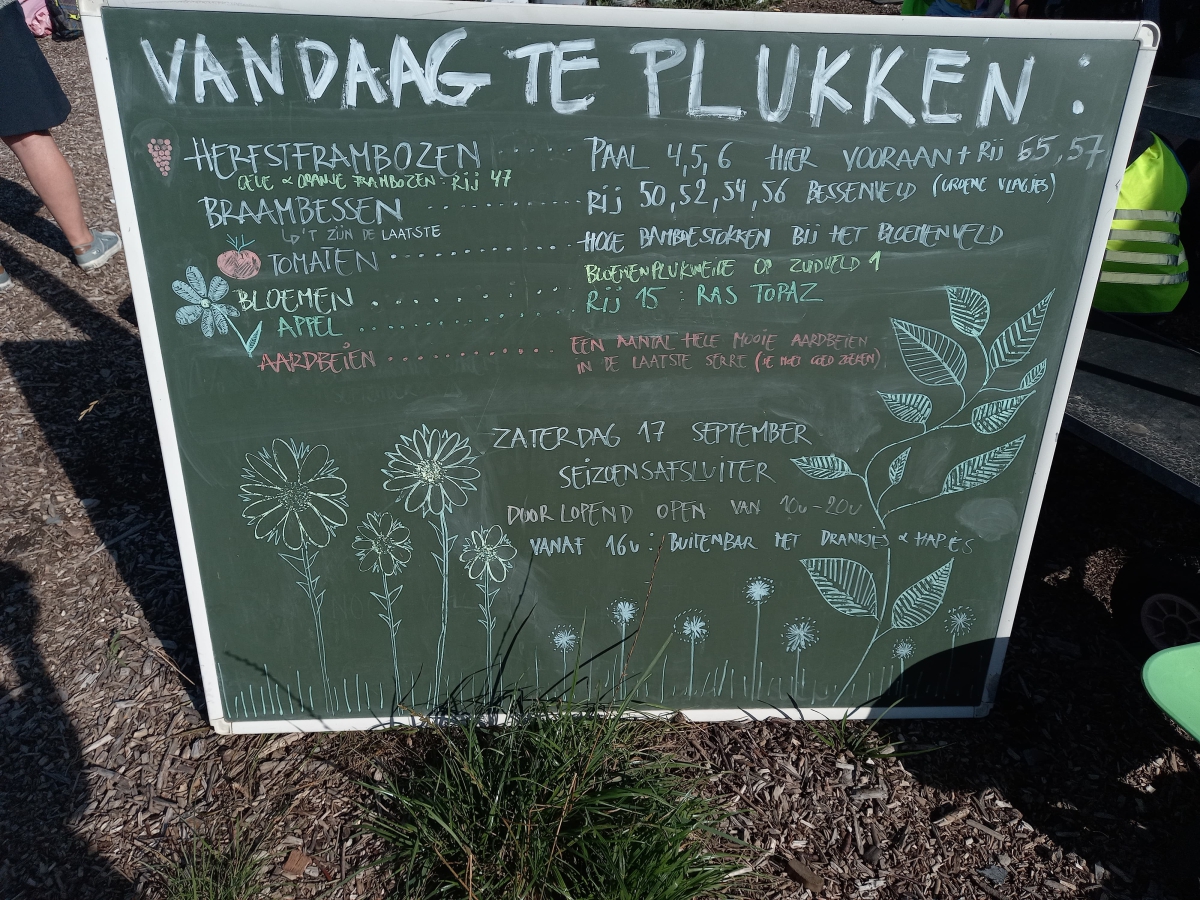 VANDAAG TE PLUKKEN :
HERFSTFRAMBOZEN ..... PAAL 4,5,6 HIER VOORAAN + RIJ 55,57
GELE & ORANJE FRAMBOZEN : RIJ 47
BRAAMBESSEN .......... RIJ 50,52,54,56 BESSENVELD (GROENE VLAGJES)
↳ 'T ZIJN DE LAATSTE
TOMATEN .......... HOGE BAMBOESTOKKEN BIJ HET BLOEMENVELD
BLOEMEN .......... BLOEMENPLUKWEIDE OP ZUIDVELD 1
APPEL .......... RIJ 15 : RAS TOPAZ
AARDBEIEN .......... EEN AANTAL HELE MOOIE AARDBEIEN
IN DE LAATSTE SERRE (JE MOET GOED ZOEKEN)
ZATERDAG 17 SEPTEMBER
SEIZOENSAFSLUITER
DOORLOPEND OPEN VAN 10u-20u
VANAF 16u : BUITENBAR MET DRANKJES & HAPJES